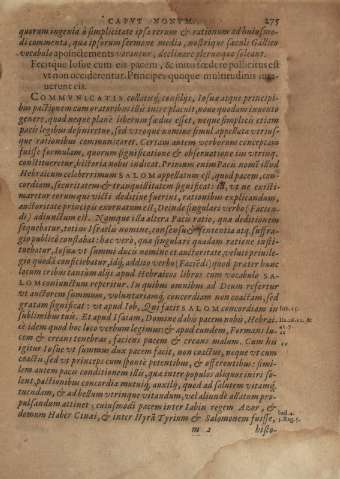 CAPVT NONVM. 275
quorum ingenia à simplicitate ipsa rerum & rationum ad huiusmo-
di commenta, qua ipsorum sermone media, nostrisque sæculi Gallico
vocabulo apoinctements vocantur, declinare plerunque solent.
Fecitque Iosue cum eis pacem, & inito fœdere pollicitus est
vt non occiderentur. Principes quoque multitudinis iura-
uerunt eis.
COMMVNICATIS collatisq́; consilijs, Iosue atque principi-
bus pactionem cum peregrinoribus illis inire placuit, nouo quodam inuento
genere, quod neque planè liberum fœdus esset, neque simplici etiam
pacis legibus definiretur, sed vtroque nomine simul appellata vtrius-
que rationibus communicaret. Certam autem verborum conceptam
fuisse formulam, quorum significatione & obseruatione ius vtrinq.
constitueretur, historia nobis indicat. Primum enim Pacis nomẽ illud
Hebraicum celeberrimum SALOM appellatum est, quod pacem, con-
cordiam, securitatem & tranquillitatem significat:
maretur eorum qui victi deditiue fuerint, rationibus explicandum,
auctoritate principis exornatum est, Deinde singulare verbo (Facien-
di) adiunctum est. Namque illa altera Pacis ratio, quæ deditionem
sequebatur, totius Israelis nomine, consensu & sententia atq. suffra-
gio publicè constabat: hac vero, qua singulari quadam ratione insti-
tuebatur, Iosua vt summi ducis nomine & auctoritate, veluti priuile-
gio quodā conficiebatur, adq́; addito verbo (Faciēdi) quod præter hunc
locum tribus tantùm alijs apud Hebraicos libros cum vocabulo SA-
LOM coniunctum reperitur. In quibus omnibus ad Deum refertur
vt auctorem summum, voluntariamq́; concordiam non coactam, sed
gratam significat: vt apud Iob, Qui facit SALOM concordiam in Iob. 25.
sublimibus suis. Et apud Isaiam, Domine dabis pacem nobis, Hebrai-
cè idem quod hoc loco verbum legimus: & apud eundem, Formans lu-
cem & creans tenebras, faciens pacem & creans malum. Cum his
igitur Iosue vt summus dux pacem facit, non coactus, neque vt cum
coactis, sed vt princeps cum sponte petentibus, & offerentibus: simi-
lem autem pacis conditionem illis, quæ inter populos aliquos iniri so-
lent, pactionibus concordia mutuiq́; auxilij, quod ad salutem vitamq́;
tuendam, & ad bellum vtrinque vitandum, vel aliunde allatum pro-
pulsandum attinet: cuiusmodi pacem inter Iabin regem Azor, &
domum Haber Cinæi, & inter Hyrā Tyrium & Salomonem fuisse, Iud. 4. 3. Reg. 5.
m 2 histo-